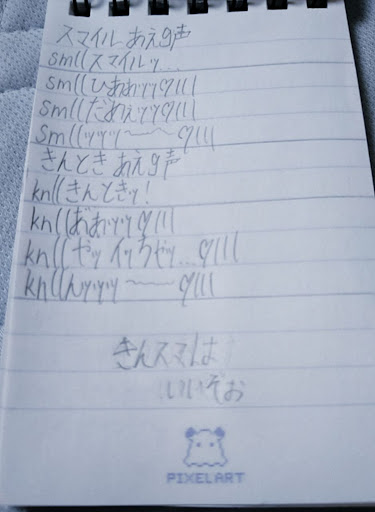 スマイル あえg声
sm((スマイルッ…
sm((ひぁぁッッ♡///
sm((だめぇッッ♡///
sm((ッッッ〜〜〜♡///
きんとき あえg声
kn((きんときッ!
kn((お゛ぉッッ♡///
kn((やッ イッちゃッ…♡///
kn((んッッッ 〜〜〜♡///
きんスマは
いいぞぉ
PIXELART